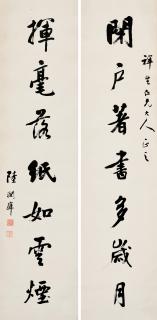 祥生仁兄大人正之
閉戶著書多歲月
揮毫落紙如雲煙
陸潤庠